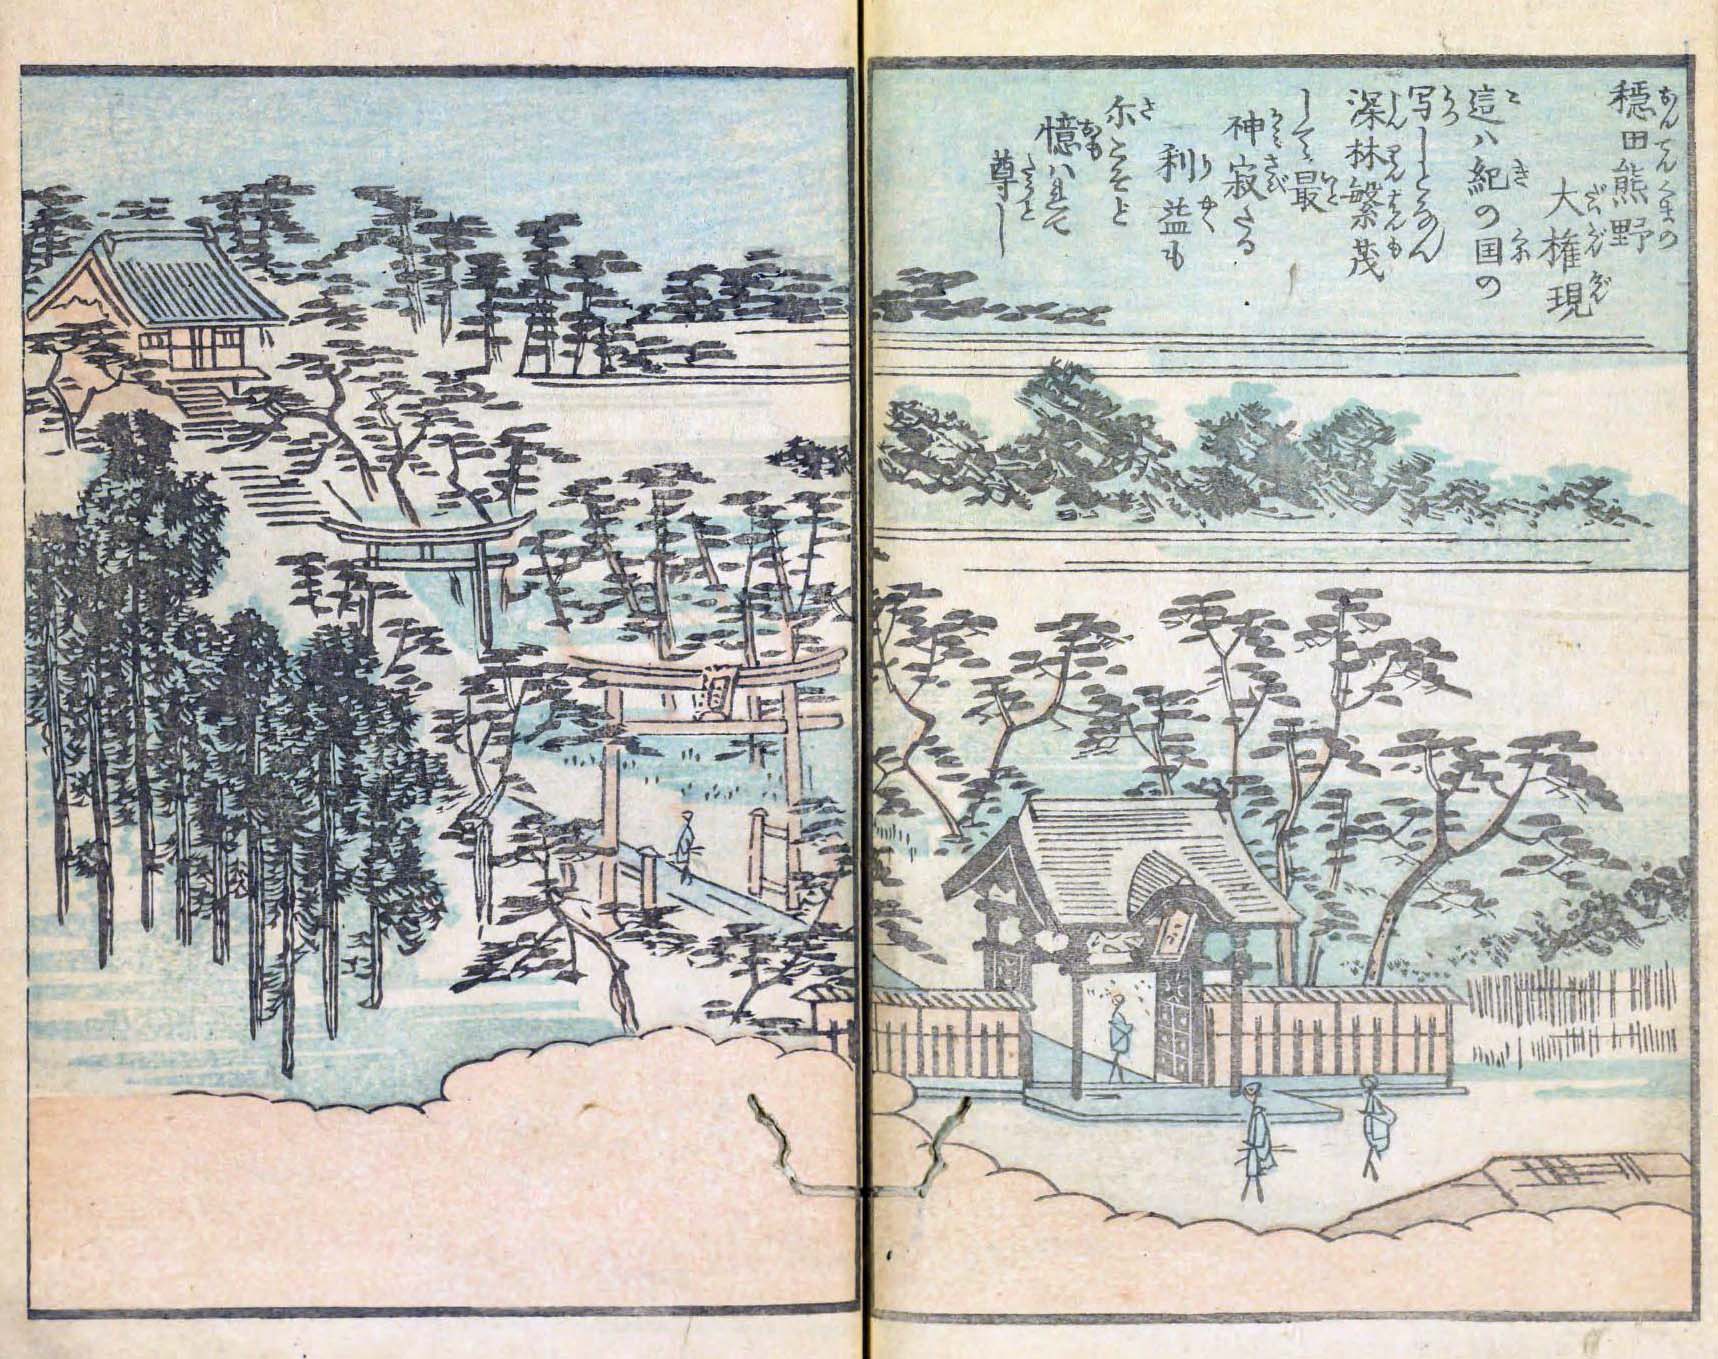 穏田熊野
大権現
這ハ紀の国の
写しとなん
深林繁茂
して最
神寂たる
利益も
尓こそと
憶ハれて
尊し